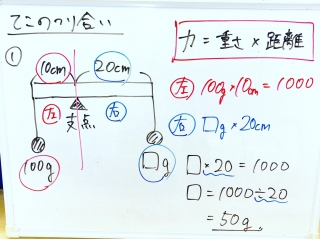 てこのつり合い
力 = 重さ × 距離
①
10cm 20cm
左 支点 右
100g □g
左 100g × 10cm = 1000
右 □g × 20cm
□ × 20 = 1000
□ = 1000 ÷ 20
= 50g